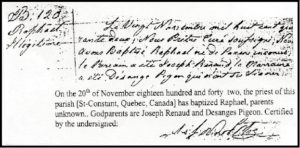 B. 120
Raphael
Illégitime
Le vingt Novembre mil huit cent qua
rante deux, Nous Prêtre Curé soussigné,
avons Baptisé Raphael né de Parens inconnus,
le Parrain a été Joseph Renaud, la Marraine
a été Désange Pigeon qui n'ont su signer
On the 20th of November eighteen hundred and forty two, the priest of this
parish [St-Constant, Quebec, Canada] has baptized Raphael, parents
unknown. Godparents are Joseph Renaud and Desanges Pigeon. Certified
by the undersigned: